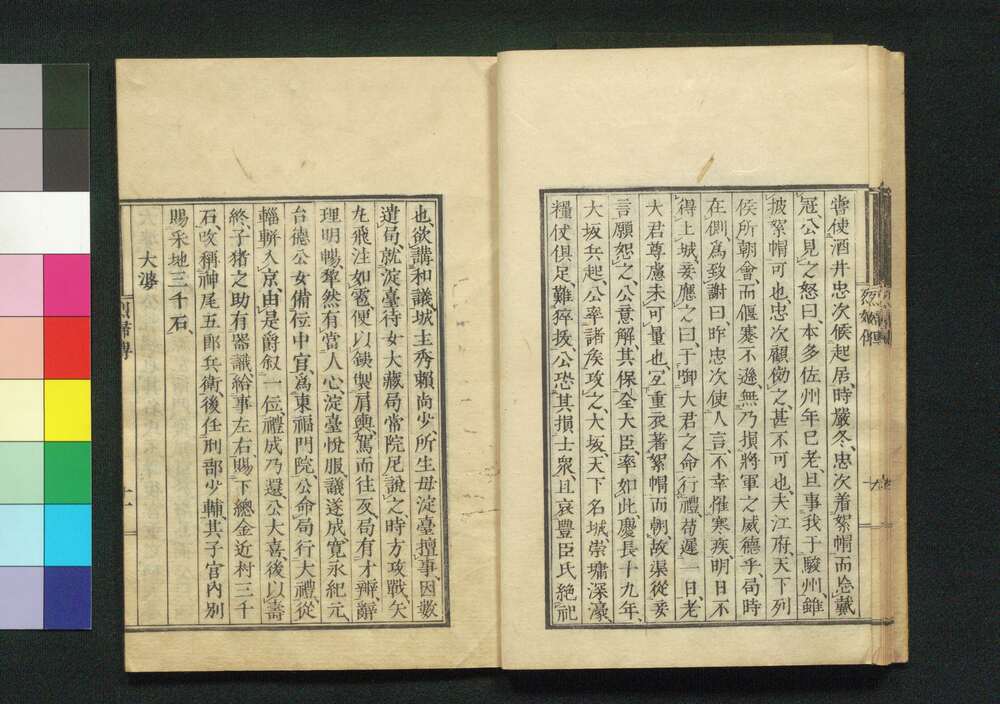 嘗使酒井忠次候起居、時嚴冬、忠次着絮帽而恐戴
冠、公見之怒曰、本多佐州年已老、且事我于駿州、雖
披絮帽可也、忠次顧傚之甚不可也、夫江府、天下列
侯所朝會、而偃蹇不遜、無乃損將軍之威德乎、局時
在側、為致謝曰、昨忠次使人言、不幸罹寒疾、明日不
得上城、妾應之曰、于御大君之命行禮、苟遲一日、老
大君尊慮未可量也、宜重衣著絮帽而朝、故渠從妾
言、願恕之、公意解、其保全大臣、率如此、慶長十九年、
大坂兵起、公率諸侯攻之、大坂、天下名城、崇墉深濠、
糧仗俱足、難猝拔、公恐其損士衆、且哀豐臣氏絶祀
也、欲講和議、城主秀賴尚少、所生母淀臺擅事、因數
遣局、就淀臺侍女大藏局常院尼說之、時方攻戰、矢
丸飛注如雹、便以鐵製肩輿、駕而往反、局有才辨、辭
理明暢、犂然有當人心、淀臺悅服、議遂成、寬永紀元、
台德公女備位中宮、為東福門院、公命局行大禮、從
輜軿入京、由是爵叙一位、禮成乃還、公大喜、後以壽
終、子猪之助有器識、給事左右、賜下總金近村三千
石、改稱神尾五郎兵衛、後任刑部少輔、其子宮內別
賜采地三千石、
大婆
烈婦傳